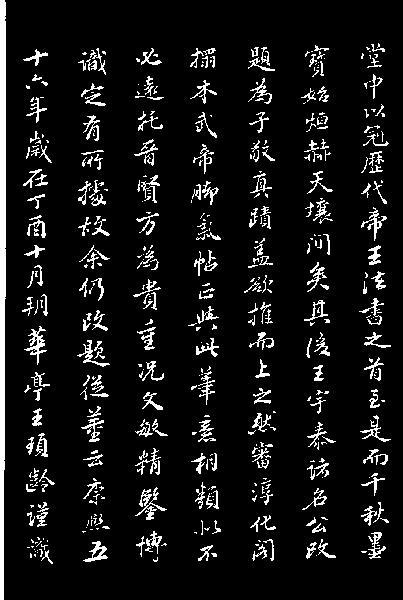 堂中以冠歷代帝王法書之首至是而千秋墨
寶始烜赫天壤間矣其後王宇泰諸名公改
題為子敬真蹟蓋欲推而上之然審淳化閣
搨本武帝腳氣帖正與此筆意相類似不
必遠托晉賢方為貴重況文敏精鑒博
識定有所據故余仍改題從董云康熙五
十六年歲在丁酉十月朔華亭王頊齡謹識